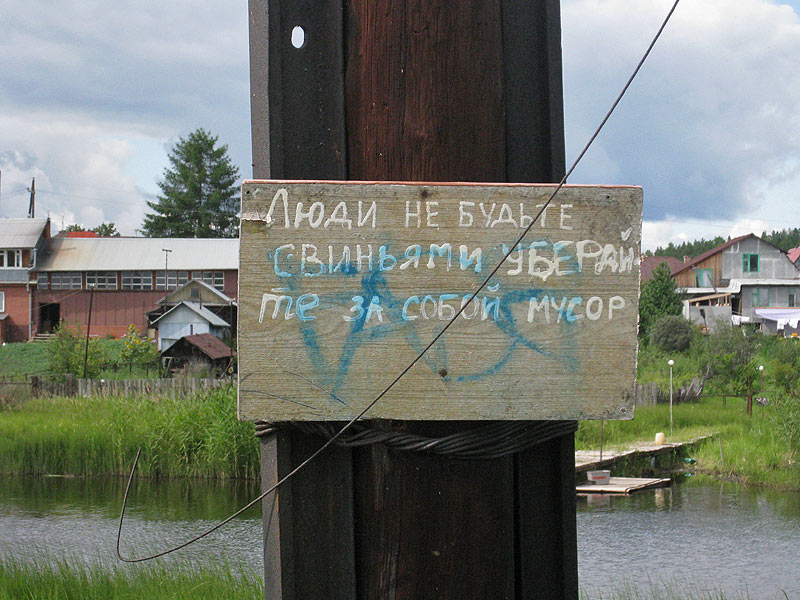 Люди не будьте
свиньями уберай
те за собой мусор